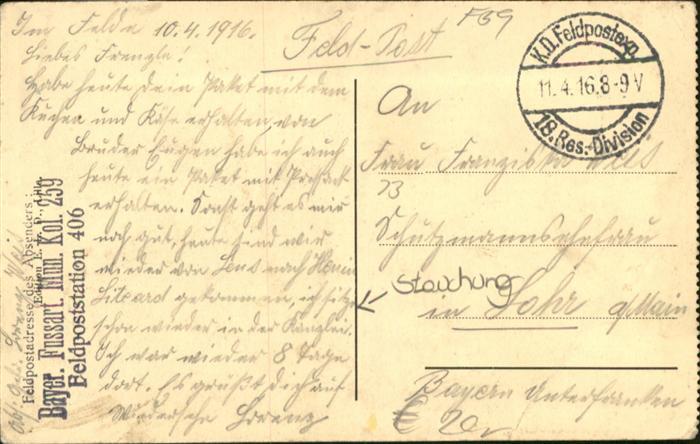 Im Felde 10.4.1916.
Liebes Franzle!
Habe heute dein Paket mit dem
Kuchen und Käse erhalten, von
Bruder Eugen habe ich auch
heute ein Paket mit Pressack
erhalten. Sonst geht es mir
noch gut, heute sind wir
wieder von Lens nach Henin
Lietard gekommen, ich sitze
schon wieder in der Kanzlei.
Ich war wieder 8 Tage
dort. Es grüßt dich auf
Wiedersehn Lorenz
Feldpostadresse des Absenders:
Bayer. Fussart. Mun. Kol. 259
Feldpoststation 406
Feld-Post
F69
K.D. Feldpostexp.
11.4.16.8-9V
18. Res.-Division
An
Frau Franziska
23
Schutzmannsehefrau
Stauchung
in Lohr a/Main
Bayern Unterfranken
€ 20,-